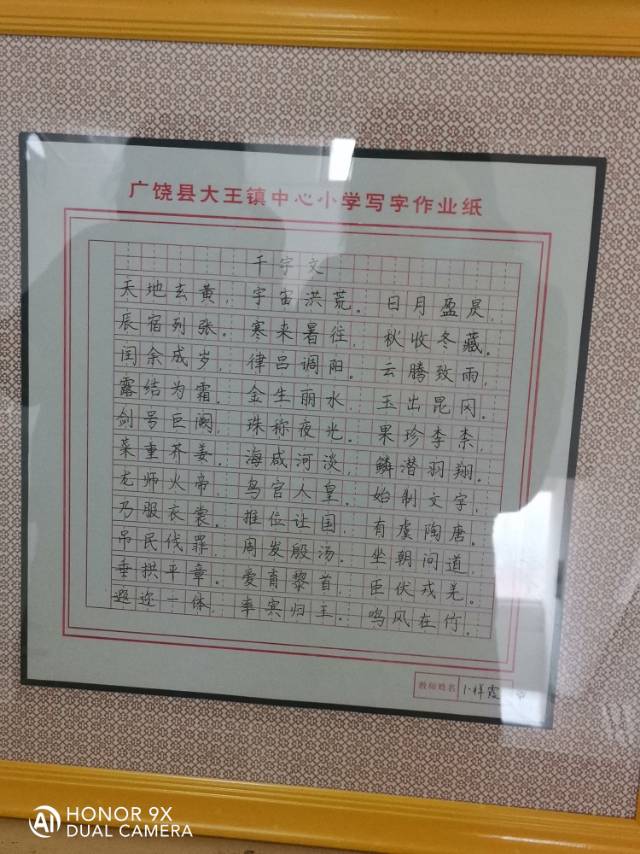 广饶县大王镇中心小学写字作业纸
千字文
天地玄黄，宇宙洪荒。日月盈昃，
辰宿列张。寒来暑往，秋收冬藏。
闰余成岁，律吕调阳。云腾致雨，
露结为霜。金生丽水，玉出昆冈。
剑号巨阙，珠称夜光。果珍李柰，
菜重芥姜。海咸河淡，鳞潜羽翔。
龙师火帝，鸟官人皇。始制文字，
乃服衣裳。推位让国，有虞陶唐。
吊民伐罪，周发殷汤。坐朝问道，
垂拱平章。爱育黎首，臣伏戎羌。
遐迩一体，率宾归王。鸣风在竹，
教师姓名
祥霞
HONOR 9X
AI DUAL CAMERA